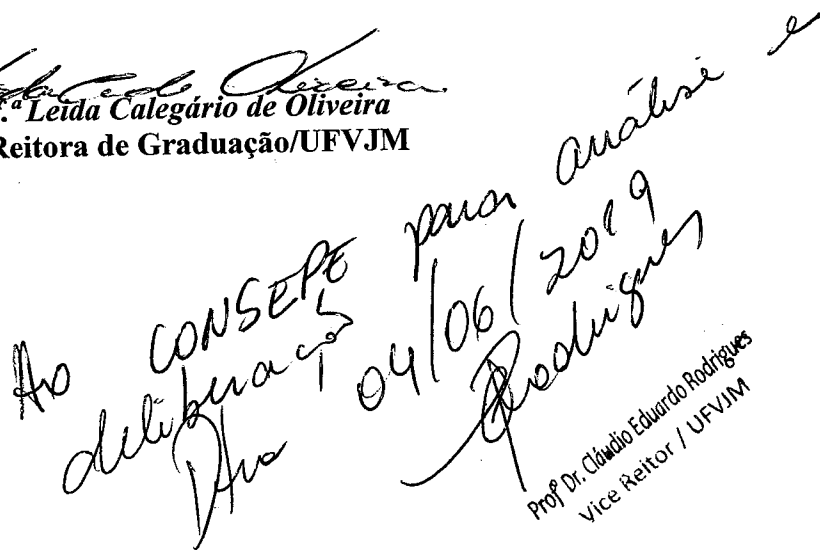 .ª Leida Calegário de Oliveira
Reitora de Graduação/UFVJM
Ao CONSEPE para análise e
deliberação
04/06/2019
Rodrigues
Profº Dr. Cláudio Eduardo Rodrigues
Vice Reitor / UFVJM